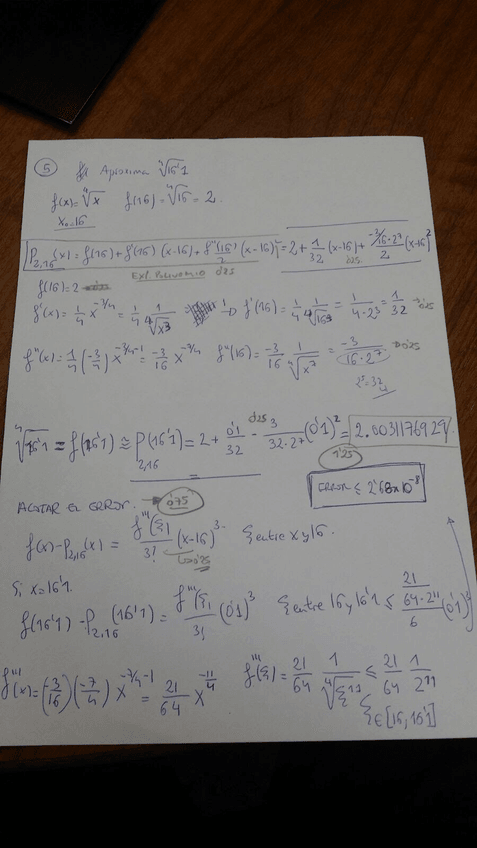 ⑤ Aproxima ∜16'1
f(x) = ∜x f(16) = ∜16 = 2.
x₀ = 16
P₂,₁₆(x) = f(16) + f'(16) (x-16) + f''(16)/2 (x-16)² = 2 + 1/32 (x-16) + (-3/(16·2⁷))/2 (x-16)²
EXP. POLINOMIO 0'25 0'25
f(16) = 2
f'(x) = 1/4 x^(-3/4) = 1/4 1/∜x³ → f'(16) = 1/4 1/∜16³ = 1/(4·2³) = 1/32 0'25
f''(x) = 1/4 (-3/4) x^(-3/4-1) = -3/16 x^(-7/4) f''(16) = -3/16 1/∜x⁷ = -3/(16·2⁷) 0'25
2⁵ = 32
∜16'1 = f(16'1) ≅ P₂,₁₆(16'1) = 2 + 0'1/32 - 3/(32·2⁷) (0'1)² = 2.003117692
0'25 1'25
ACOTAR EL ERROR. → 0'75 ERROR ≤ 2'68x10⁻⁸
f(x) - P₂,₁₆(x) = f'''(ξ)/3! (x-16)³ ξ entre x y 16.
0'25
Si x = 16'1.
f(16'1) - P₂,₁₆(16'1) = f'''(ξ)/3! (0'1)³ ξ entre 16 y 16'1 ≤ (21/(64·2¹¹))/6 (0'1)³
f'''(x) = (-3/16) (-7/4) x^(-7/4-1) = 21/64 x^(-11/4) f'''(ξ) = 21/64 1/∜ξ¹¹ ≤ 21/64 1/2¹¹
ξ ∈ [16, 16'1]